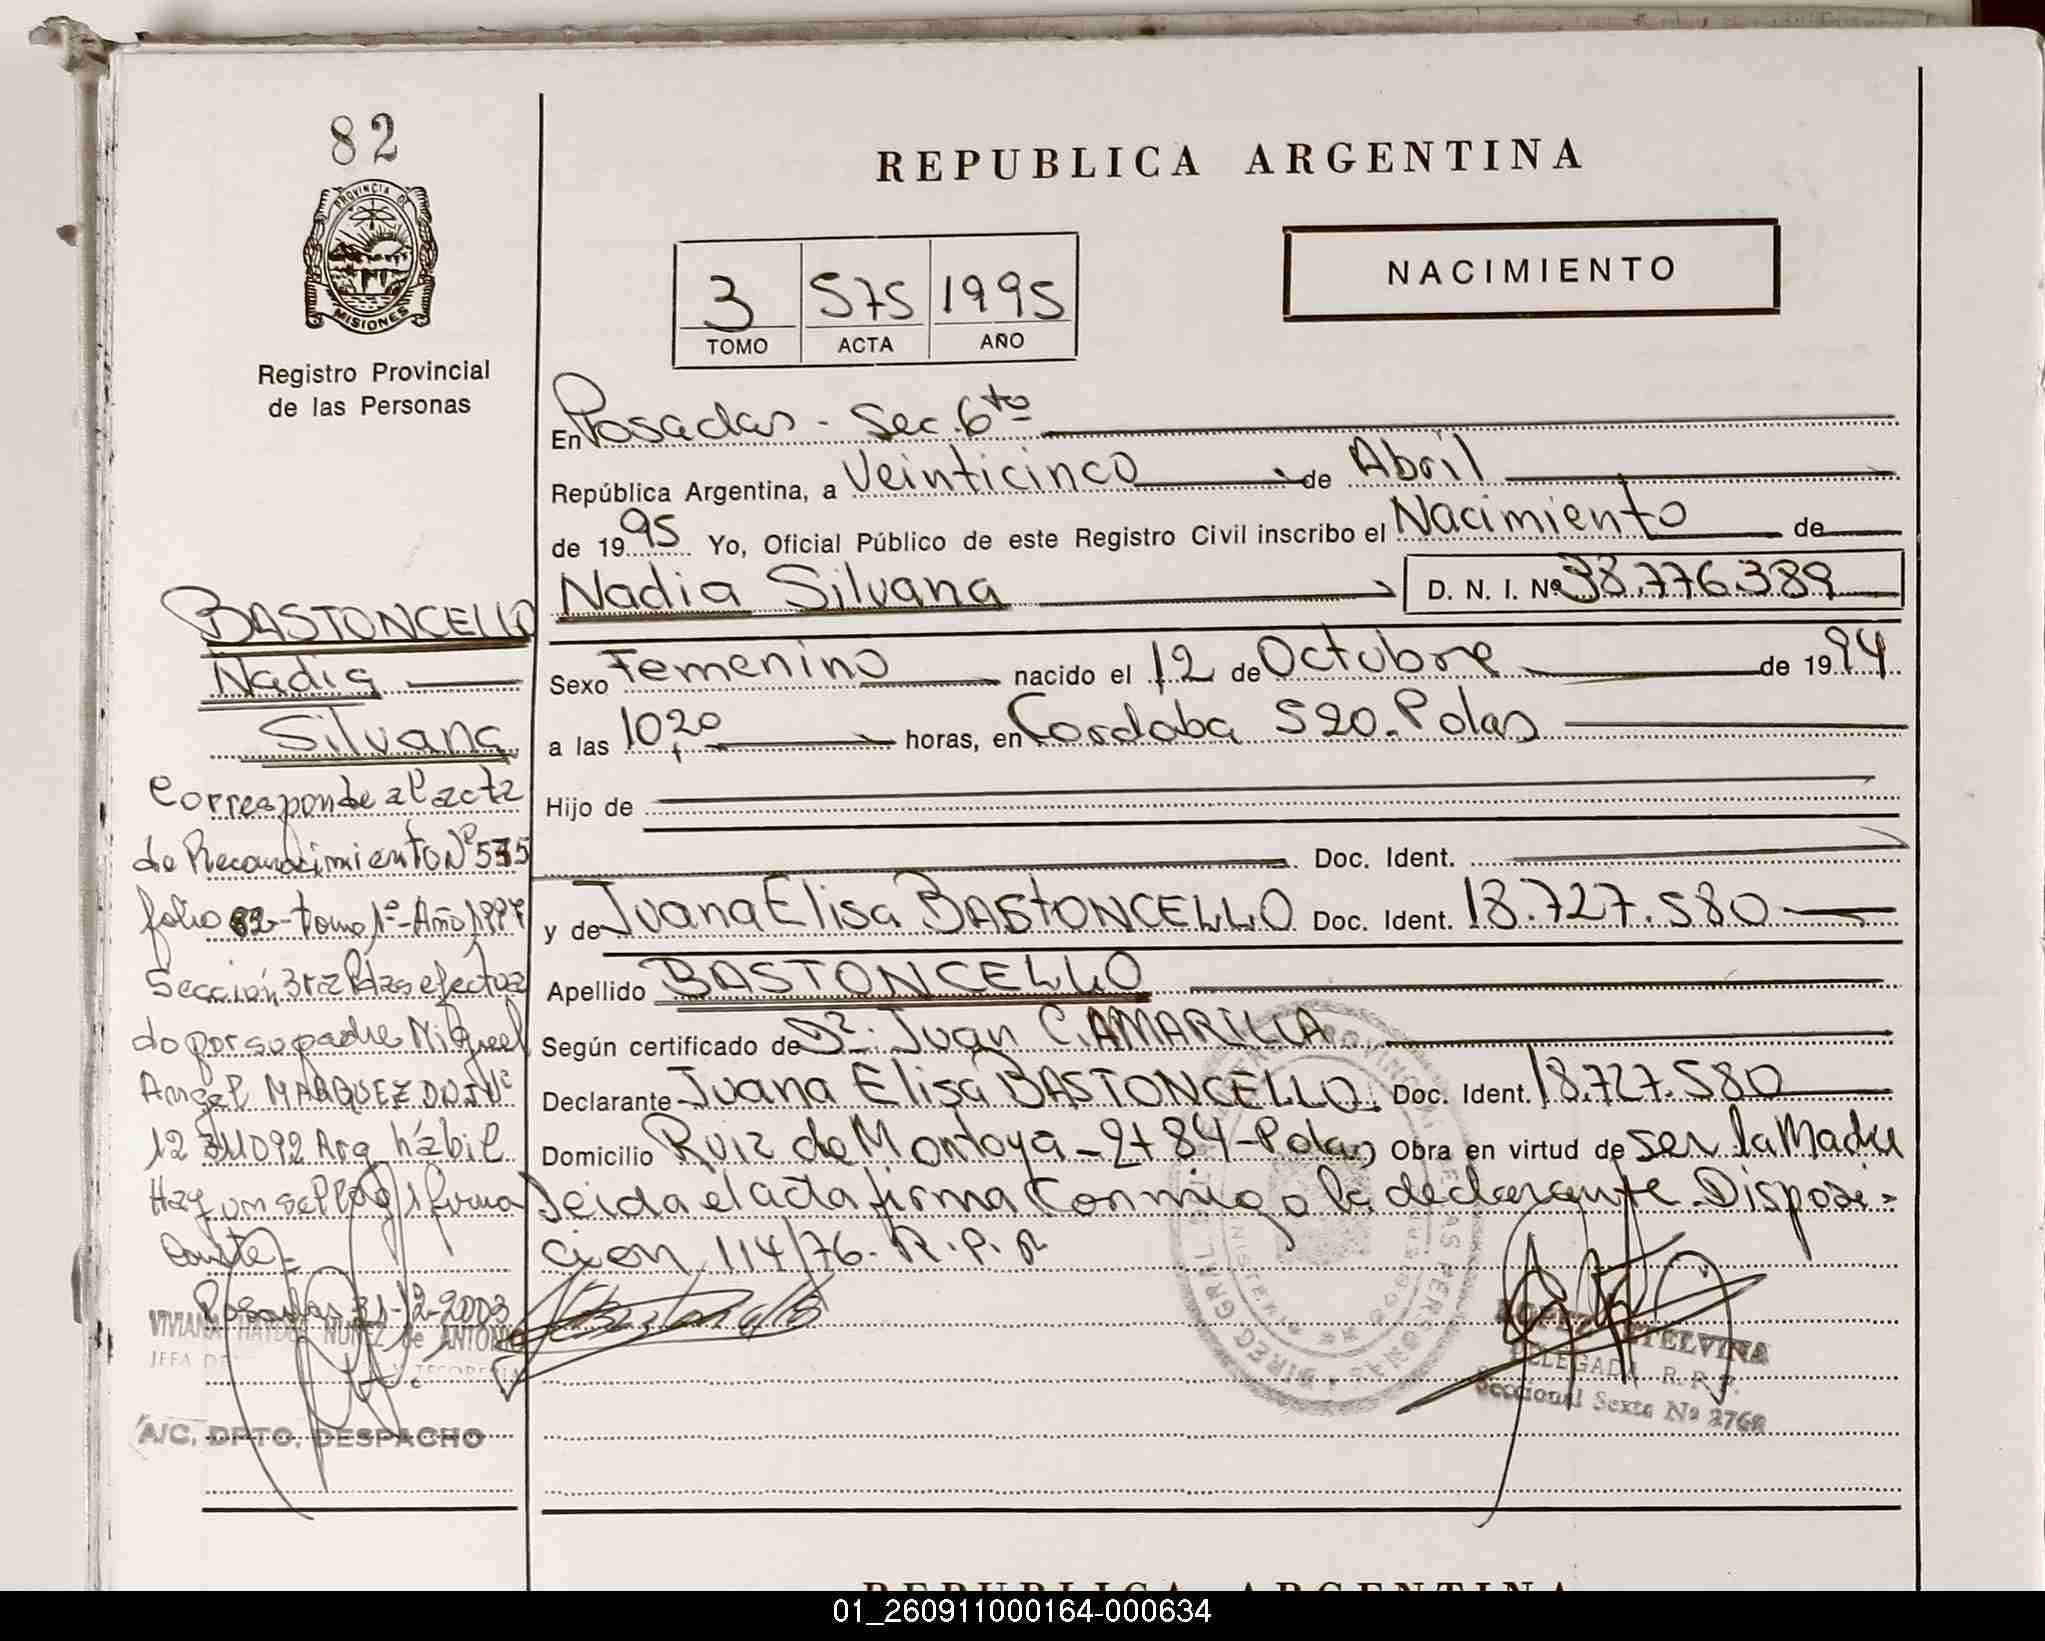 82
PROVINCIA DE
MISIONES
Registro Provincial
de las Personas
REPUBLICA ARGENTINA
NACIMIENTO
3 575 1995
TOMO ACTA AÑO
En Posadas - Sec. 6to
República Argentina, a Veinticinco de Abril
de 1995 Yo, Oficial Público de este Registro Civil inscribo el Nacimiento de
Nadia Silvana D. N. I. Nº 38.776.389
Sexo Femenino nacido el 12 de Octubre de 1994
a las 10,20 horas, en Cordoba 520. Pdas
Hijo de
Doc. Ident.
y de Juana Elisa BASTONCELLO Doc. Ident. 18.727.580
Apellido BASTONCELLO
Según certificado de Dr. Juan C. AMARILLA
Declarante Juana Elisa BASTONCELLO. Doc. Ident. 18.727.580
Domicilio Ruiz de Montoya - 2784 - Pdas Obra en virtud de ser la Madre
Leida el acta firma Conmigo la declarante. Disposi-
cion 114/76. R.P.P.
BASTONCELLO
Nadia
Silvana
Corresponde al acta
de Reconocimiento Nº 575
folio 82 - tomo 1º - Año 1997
Sección 3ra Pdas efectua
do por su padre Miguel
Angel MARQUEZ DNI Nº
12 Arg. hábil
Hay un sello y firma
Conste.-
Posadas 31-12-2003
VIVIANA HAYDEE NUÑEZ de ANTONIO
JEFA
A/C. DPTO. DESPACHO
LOPEZ ETELVINA
DELEGADA R. P. P.
Seccional Sexta Nº 2768
REPUBLICA ARGENTINA
01_260911000164-000634